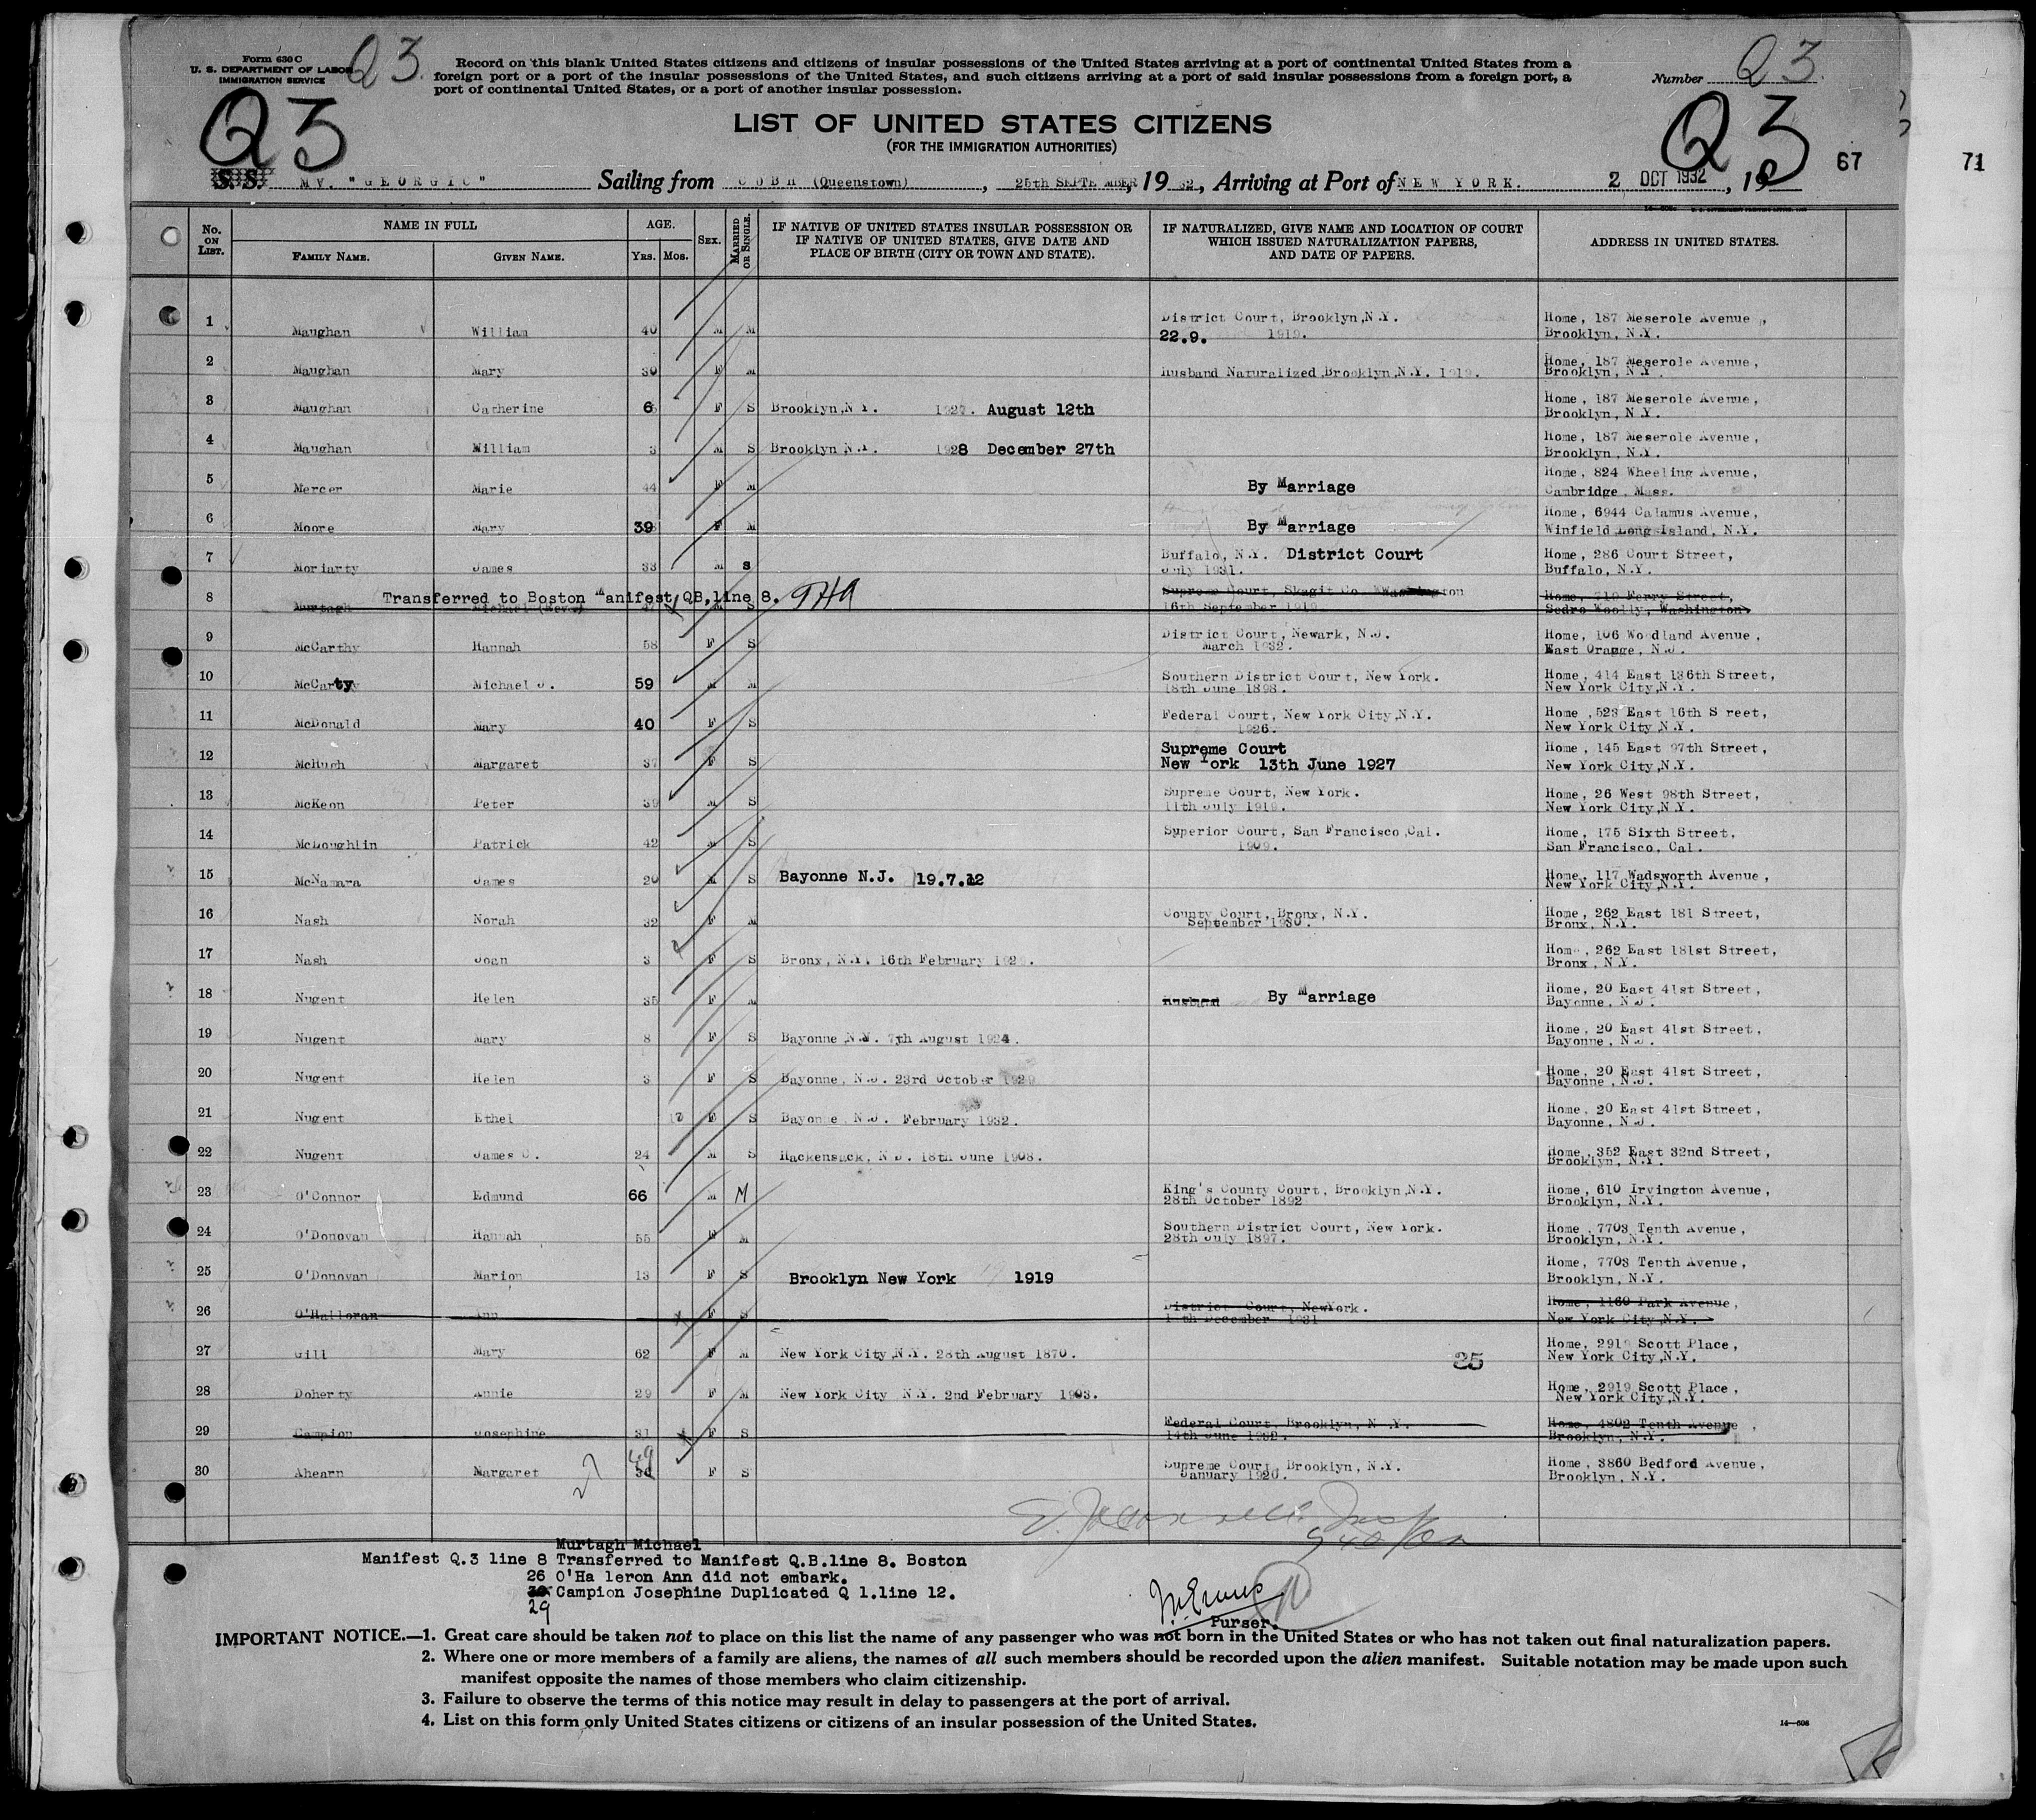 Form 630 C
U. S. DEPARTMENT OF LABOR
IMMIGRATION SERVICE
Q 3.
Record on this blank United States citizens and citizens of insular possessions of the United States arriving at a port of continental United States from a
foreign port or a port of the insular possessions of the United States, and such citizens arriving at a port of said insular possessions from a foreign port, a
port of continental United States, or a port of another insular possession.
Number Q 3.
Q3
Q3
LIST OF UNITED STATES CITIZENS
(FOR THE IMMIGRATION AUTHORITIES)
67
71
S. S. MV. "GEORGIC" Sailing from COBH (Queenstown), 25th SEPTEMBER, 1932, Arriving at Port of NEW YORK. 2 OCT 1932, 19
No. ON LIST. NAME IN FULL AGE. SEX. MARRIED OR SINGLE. IF NATIVE OF UNITED STATES INSULAR POSSESSION OR IF NATIVE OF UNITED STATES, GIVE DATE AND PLACE OF BIRTH (CITY OR TOWN AND STATE). IF NATURALIZED, GIVE NAME AND LOCATION OF COURT WHICH ISSUED NATURALIZATION PAPERS, AND DATE OF PAPERS. ADDRESS IN UNITED STATES.
FAMILY NAME. GIVEN NAME. YRS. MOS.
1 Maughan William 40 M M District Court, Brooklyn,N.Y. 22.9. 1919. Home, 187 Meserole Avenue, Brooklyn, N.Y.
2 Maughan Mary 30 F M Husband Naturalized,Brooklyn,N.Y. 1919. Home, 187 Meserole Avenue, Brooklyn, N.Y.
3 Maughan Catherine 6 F S Brooklyn,N.Y. 1927. August 12th Home, 187 Meserole Avenue, Brooklyn, N.Y.
4 Maughan William 3 M S Brooklyn,N.Y. 1928 December 27th Home, 187 Meserole Avenue, Brooklyn, N.Y.
5 Mercer Marie 44 F M By Marriage Home, 824 Wheeling Avenue, Cambridge, Mass.
6 Moore Mary 39 F M By Marriage Home, 6944 Calamus Avenue, Winfield Long Island, N.Y.
7 Moriarty James 33 M S Buffalo, N.Y. District Court July 1931. Home, 286 Court Street, Buffalo, N.Y.
8 Murtagh Michael (Rev.) 47 S Transferred to Boston Manifest QB,line 8. Supreme Court, Skagit Co. Washington 16th September 1919. Home, 719 Ferry Street, Sedro Woolly, Washington
9 McCarthy Hannah 58 F S District Court, Newark, N.J. March 1932. Home, 106 Woodland Avenue, East Oragge, N.J.
10 McCarty Michael J. 59 M M Southern District Court, New York. 18th June 1898. Home, 414 East 136th Street, New York City,N.Y.
11 McDonald Mary 40 F S Federal Court, New York City,N.Y. 1926. Home, 523 East 16th S reet, New York City,N.Y.
12 McHugh Margaret 37 F S Supreme Court New York 13th June 1927 Home, 145 East 97th Street, New York City,N.Y.
13 McKeon Peter 39 M S Supreme Court, New York. 11th July 1919. Home, 26 West 98th Street, New York City,N.Y.
14 McLoughlin Patrick 42 M S Superior Court, San Francisco,Cal. 1909. Home, 175 Sixth Street, San Francisco, Cal.
15 McNamara James 20 M S Bayonne N.J. 19.7.12 Home, 117 Wadsworth Avenue, New York City,N.Y.
16 Nash Norah 32 F M County Court, Bronx, N.Y. September 1930. Home, 262 East 181 Street, Bronx, N.Y.
17 Nash Joan 3 F S Bronx, N.Y. 16th February Home, 262 East 181st Street, Bronx, N.Y.
18 Nugent Helen 35 F M Husband By Marriage Home, 20 East 41st Street, Bayonne, N.J.
19 Nugent Mary 8 F S Bayonne,N.J. 7th August 1924. Home, 20 East 41st Street, Bayonne, N.J.
20 Nugent Helen 3 F S Bayonne, N.J. 23rd October 1929 Home, 20 East 41st Street, Bayonne, N.J.
21 Nugent Ethel F S Bayonne, N.J. February 1932. Home, 20 East 41st Street, Bayonne, N.J.
22 Nugent James 24 M S Hackensack, N.J. 18th June 1908. Home, 352 East 32nd Street, Brooklyn, N.Y.
23 O'Connor Edmund 66 M M King's County Court, Brooklyn,N.Y. 28th October 1892 Home, 610 Irvington Avenue, Brooklyn, N.Y.
24 O'Donovan Hannah 55 F M Southern District Court, New York. 28th July 1897. Home, 7703 Tenth Avenue, Brooklyn, N.Y.
25 O'Donovan Marion 13 F S Brooklyn New York 1919 Home, 7703 Tenth Avenue, Brooklyn, N.Y.
26 O'Halloran Ann F S District Court, NewYork. December 1931 Home, 1160 Park Avenue, New York City,N.Y.
27 Gill Mary 62 F M New York City,N.Y. 28th August 1870. 25 Home, 2919 Scott Place, New York City,N.Y.
28 Doherty Annie 29 F M New York City N.Y. 2nd February 1903. Home, 2919 Scott Place, New York City,N.Y.
29 Campion Josephine 31 F S Federal Court, Brooklyn, N.Y. 14th June 1932. Home, 4802 Tenth Avenue, Brooklyn, N.Y.
30 Ahearn Margaret 49 F S Supreme Court, Brooklyn, N.Y. January 1920. Home, 3860 Bedford Avenue, Brooklyn, N.Y.
Murtagh Michael
Manifest Q.3 line 8 Transferred to Manifest Q.B.line 8. Boston
26 O'Ha leron Ann did not embark.
29 Campion Josephine Duplicated Q 1.line 12.
Purser.
IMPORTANT NOTICE.—1. Great care should be taken not to place on this list the name of any passenger who was not born in the United States or who has not taken out final naturalization papers.
2. Where one or more members of a family are aliens, the names of all such members should be recorded upon the alien manifest. Suitable notation may be made upon such
manifest opposite the names of those members who claim citizenship.
3. Failure to observe the terms of this notice may result in delay to passengers at the port of arrival.
4. List on this form only United States citizens or citizens of an insular possession of the United States.
14—608